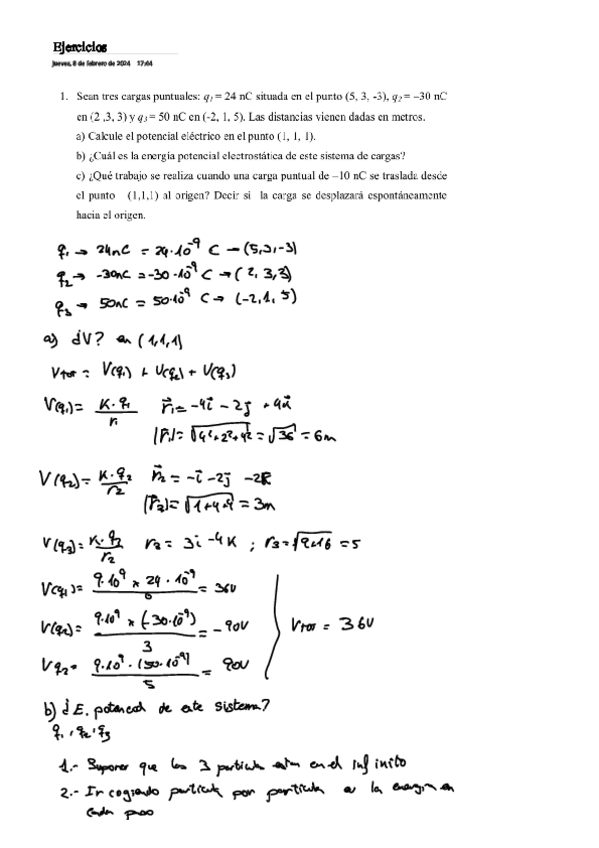 Ejercicios
jueves, 8 de febrero de 2024 17:44
1. Sean tres cargas puntuales: q₁ = 24 nC situada en el punto (5, 3, -3), q₂ = –30 nC
en (2 ,3, 3) y q₃ = 50 nC en (-2, 1, 5). Las distancias vienen dadas en metros.
a) Calcule el potencial eléctrico en el punto (1, 1, 1).
b) ¿Cuál es la energía potencial electrostática de este sistema de cargas?
c) ¿Qué trabajo se realiza cuando una carga puntual de –10 nC se traslada desde
el punto (1,1,1) al origen? Decir si la carga se desplazará espontáneamente
hacia el origen.
q₁ → 24nC = 24·10⁻⁹ C → (5,3,-3)
q₂ → -30nC = -30·10⁻⁹ C → (2, 3, 3)
q₃ → 50nC = 50·10⁻⁹ C → (-2,1, 5)
a) ¿V? en (1,1,1)
Vtot = V(q₁) + V(q₂) + V(q₃)
V(q₁) = K·q₁ / r₁ r⃗₁ = -4i⃗ - 2j + 4k⃗
|r⃗₁| = √4²+2²+4² = √36 = 6m
V(q₂) = K·q₂ / r₂ r⃗₂ = -i⃗ -2j⃗ -2k
|r⃗₂| = √1+4+4 = 3m
V(q₃) = K·q₂ / r₂ r₃ = 3i -4K ; r₃ = √9+16 = 5
V(q₁) = 9·10⁹ × 24·10⁻⁹ / 6 = 36V
V(q₂) = 9·10⁹ × (-30·10⁻⁹) / 3 = -90V Vtot = 36V
Vq₂ = 9·10⁹ · (50·10⁻⁹) / 5 = 90V
b) ¿E. potencial de este sistema?
q₁, q₂, q₃
1.- Suponer que las 3 partículas están en el infinito
2.- Ir cogiendo partícula por partícula la energía en
cada paso